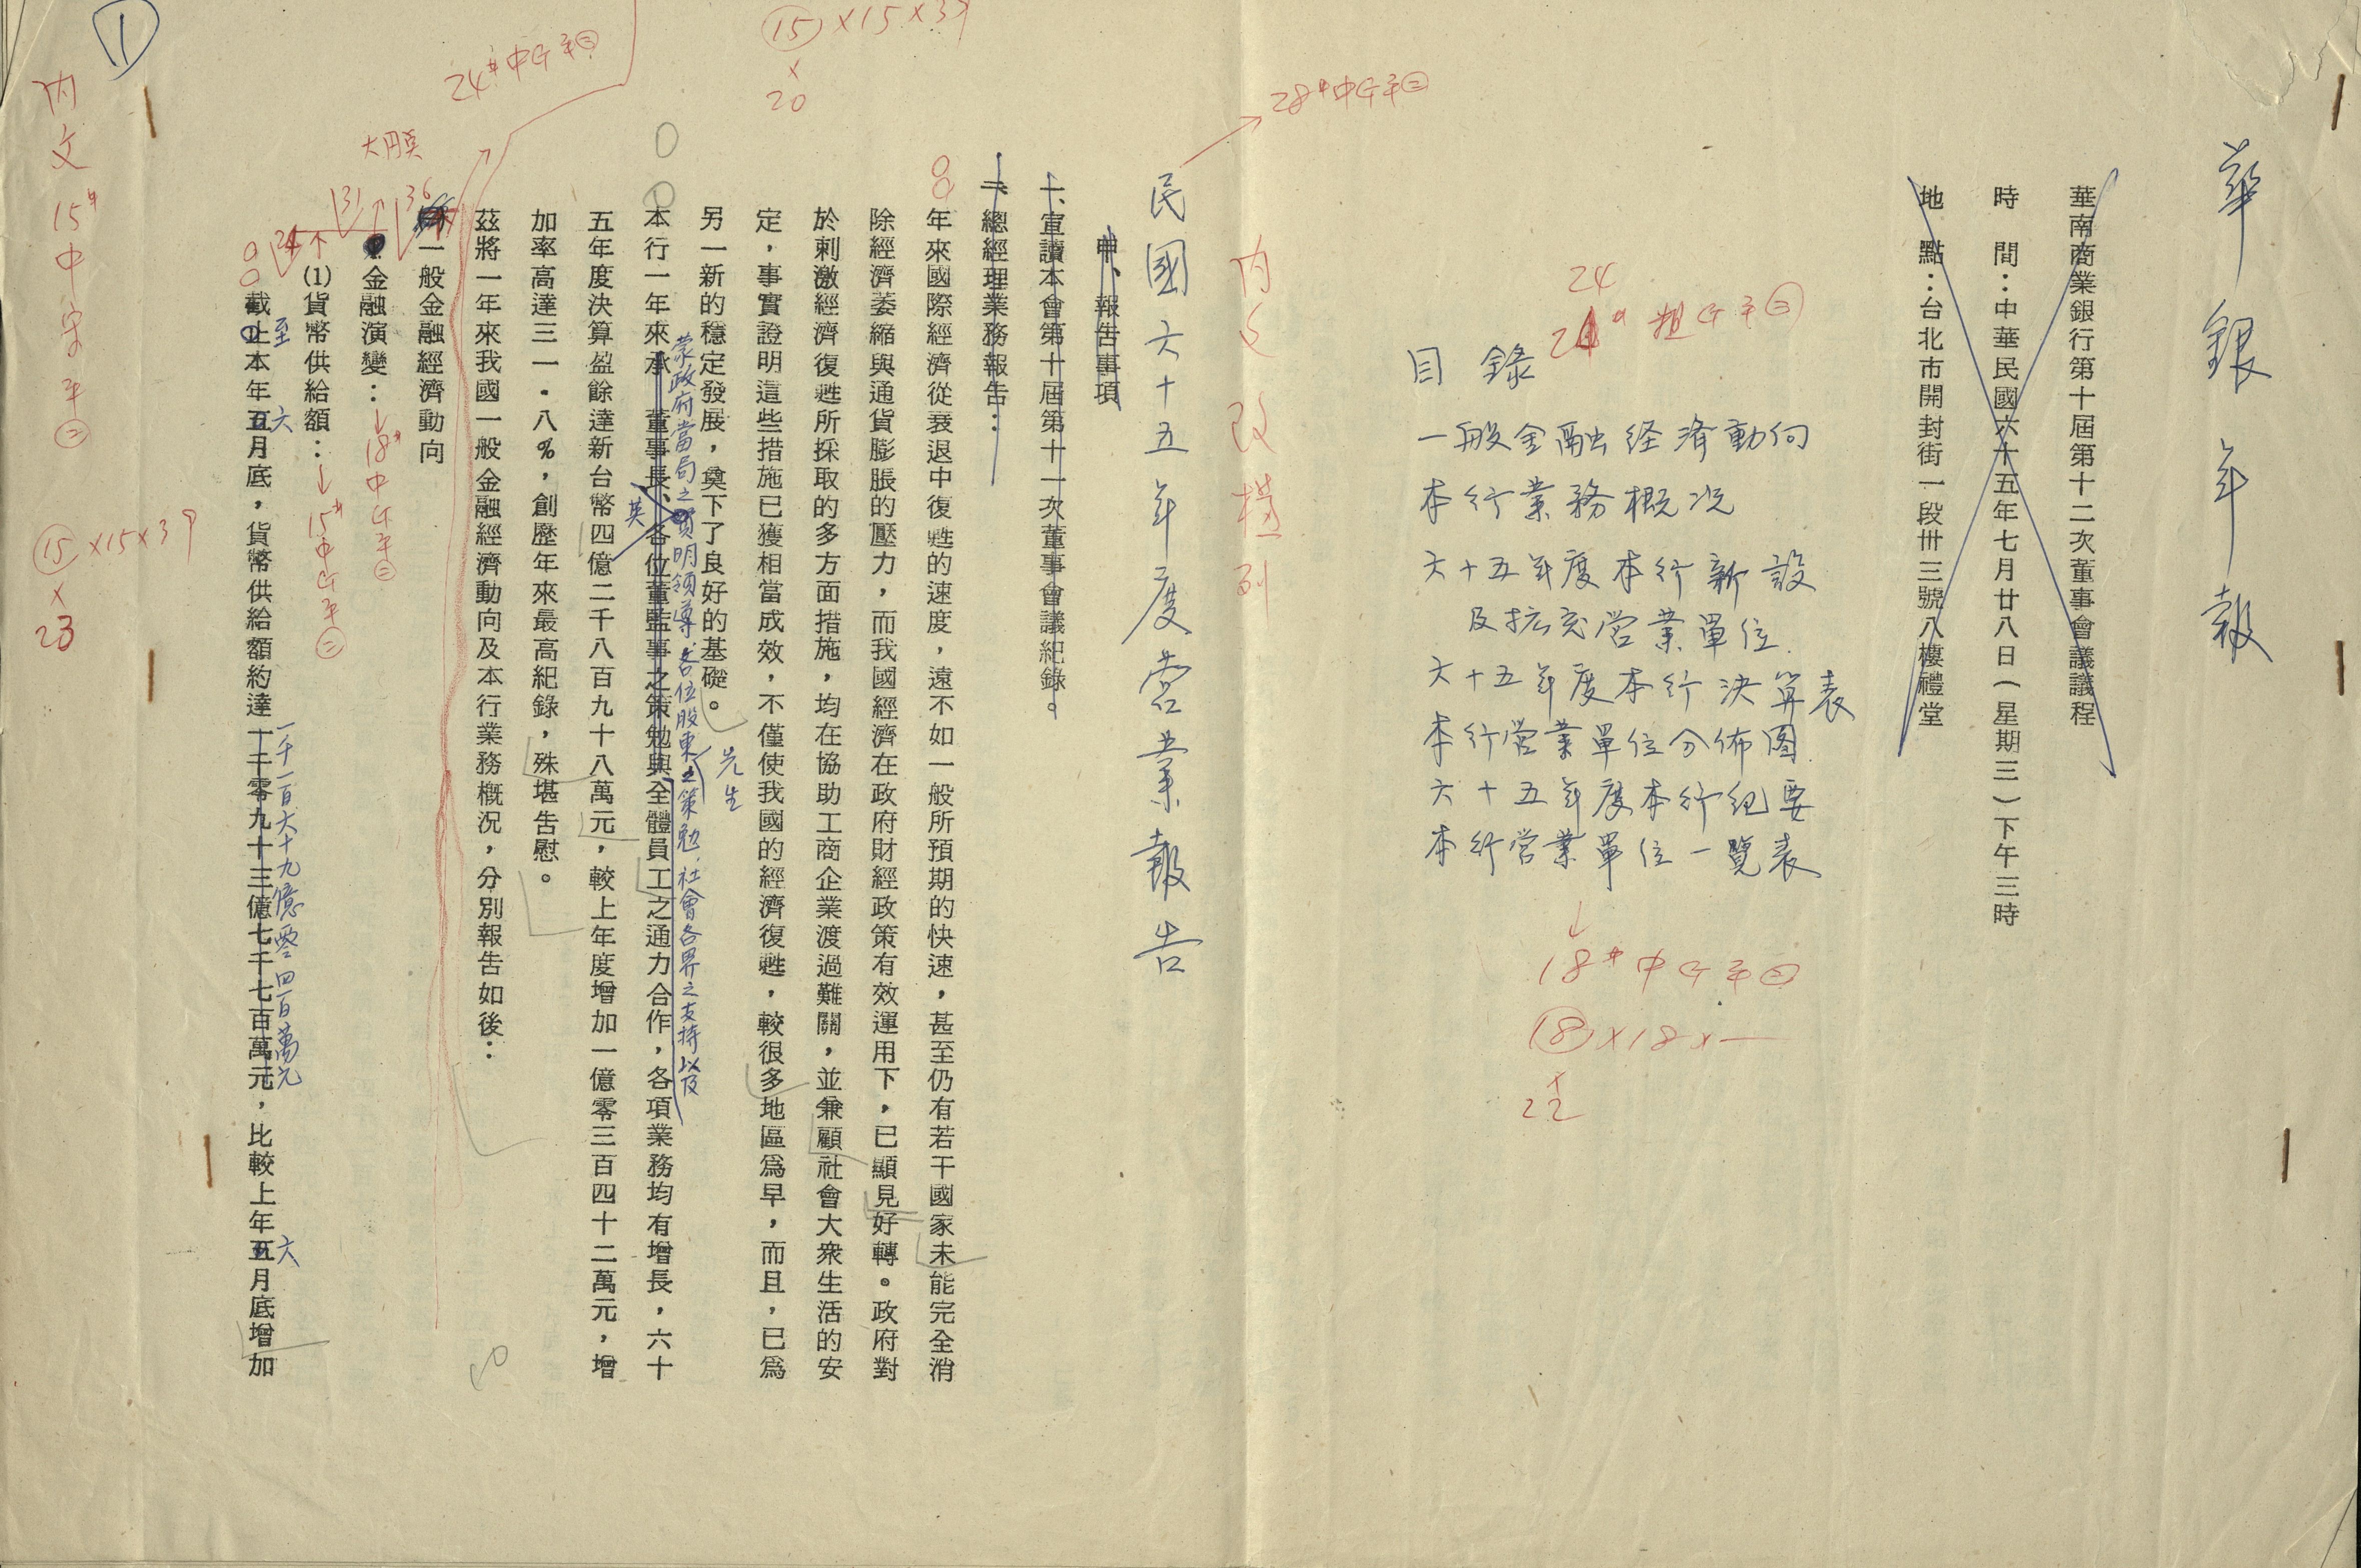 華銀年報
華南商業銀行第十屆第十二次董事會議議程
時　間：中華民國六十五年七月廿八日（星期三）下午三時
地　點：台北市開封街一段卅三號八樓禮堂
24
24# 粗 平
目錄
一般金融経済動向
本行業務概况
六十五年度本行新設
及拡充营業單位
六十五年度本行決算表
本行営業單位分佈图
六十五年度本行紀要
本行営業單位一覽表
↓
18# 中 平
⑱×18×一
×
22
28# 中 平
內文改横刻
民國六十五年度营業報告
⑮×15×39
×
20
甲、報告事項
一、宣讀本會第十屆第十一次董事會議紀錄。
二、總經理業務報告：
年來國際經濟從衰退中復甦的速度，遠不如一般所預期的快速，甚至仍有若干國家未能完全消
除經濟萎縮與通貨膨脹的壓力，而我國經濟在政府財經政策有效運用下，已顯見好轉。政府對
於刺激經濟復甦所採取的多方面措施，均在協助工商企業渡過難關，並兼顧社會大衆生活的安
定，事實證明這些措施已獲相當成效，不僅使我國的經濟復甦，較很多地區爲早，而且，已爲
另一新的穩定發展，奠下了良好的基礎。
先生
蒙政府當局之賢明領導、各位股東之策勉、社會各界之支持以及
本行一年來承　董事長、各位董監事之策勉與全體員工之通力合作，各項業務均有增長，六十
英
五年度決算盈餘達新台幣四億二千八百九十八萬元，較上年度增加一億零三百四十二萬元，增
加率高達三一．八％，創歷年來最高紀錄，殊堪告慰。
茲將一年來我國一般金融經濟動向及本行業務概況，分別報告如後：
24# 中 平
36
一般金融經濟動向
31
金融演變：
↓18# 中 平
24
(1)貨幣供給額：
↓15# 中 平
至
六
一千一百六十九億零四百萬元
六
截止本年五月底，貨幣供給額約達一千零九十三億七千七百萬元，比較上年五月底增加
①
內文15# 中宋平
⑮×15×39
×
23